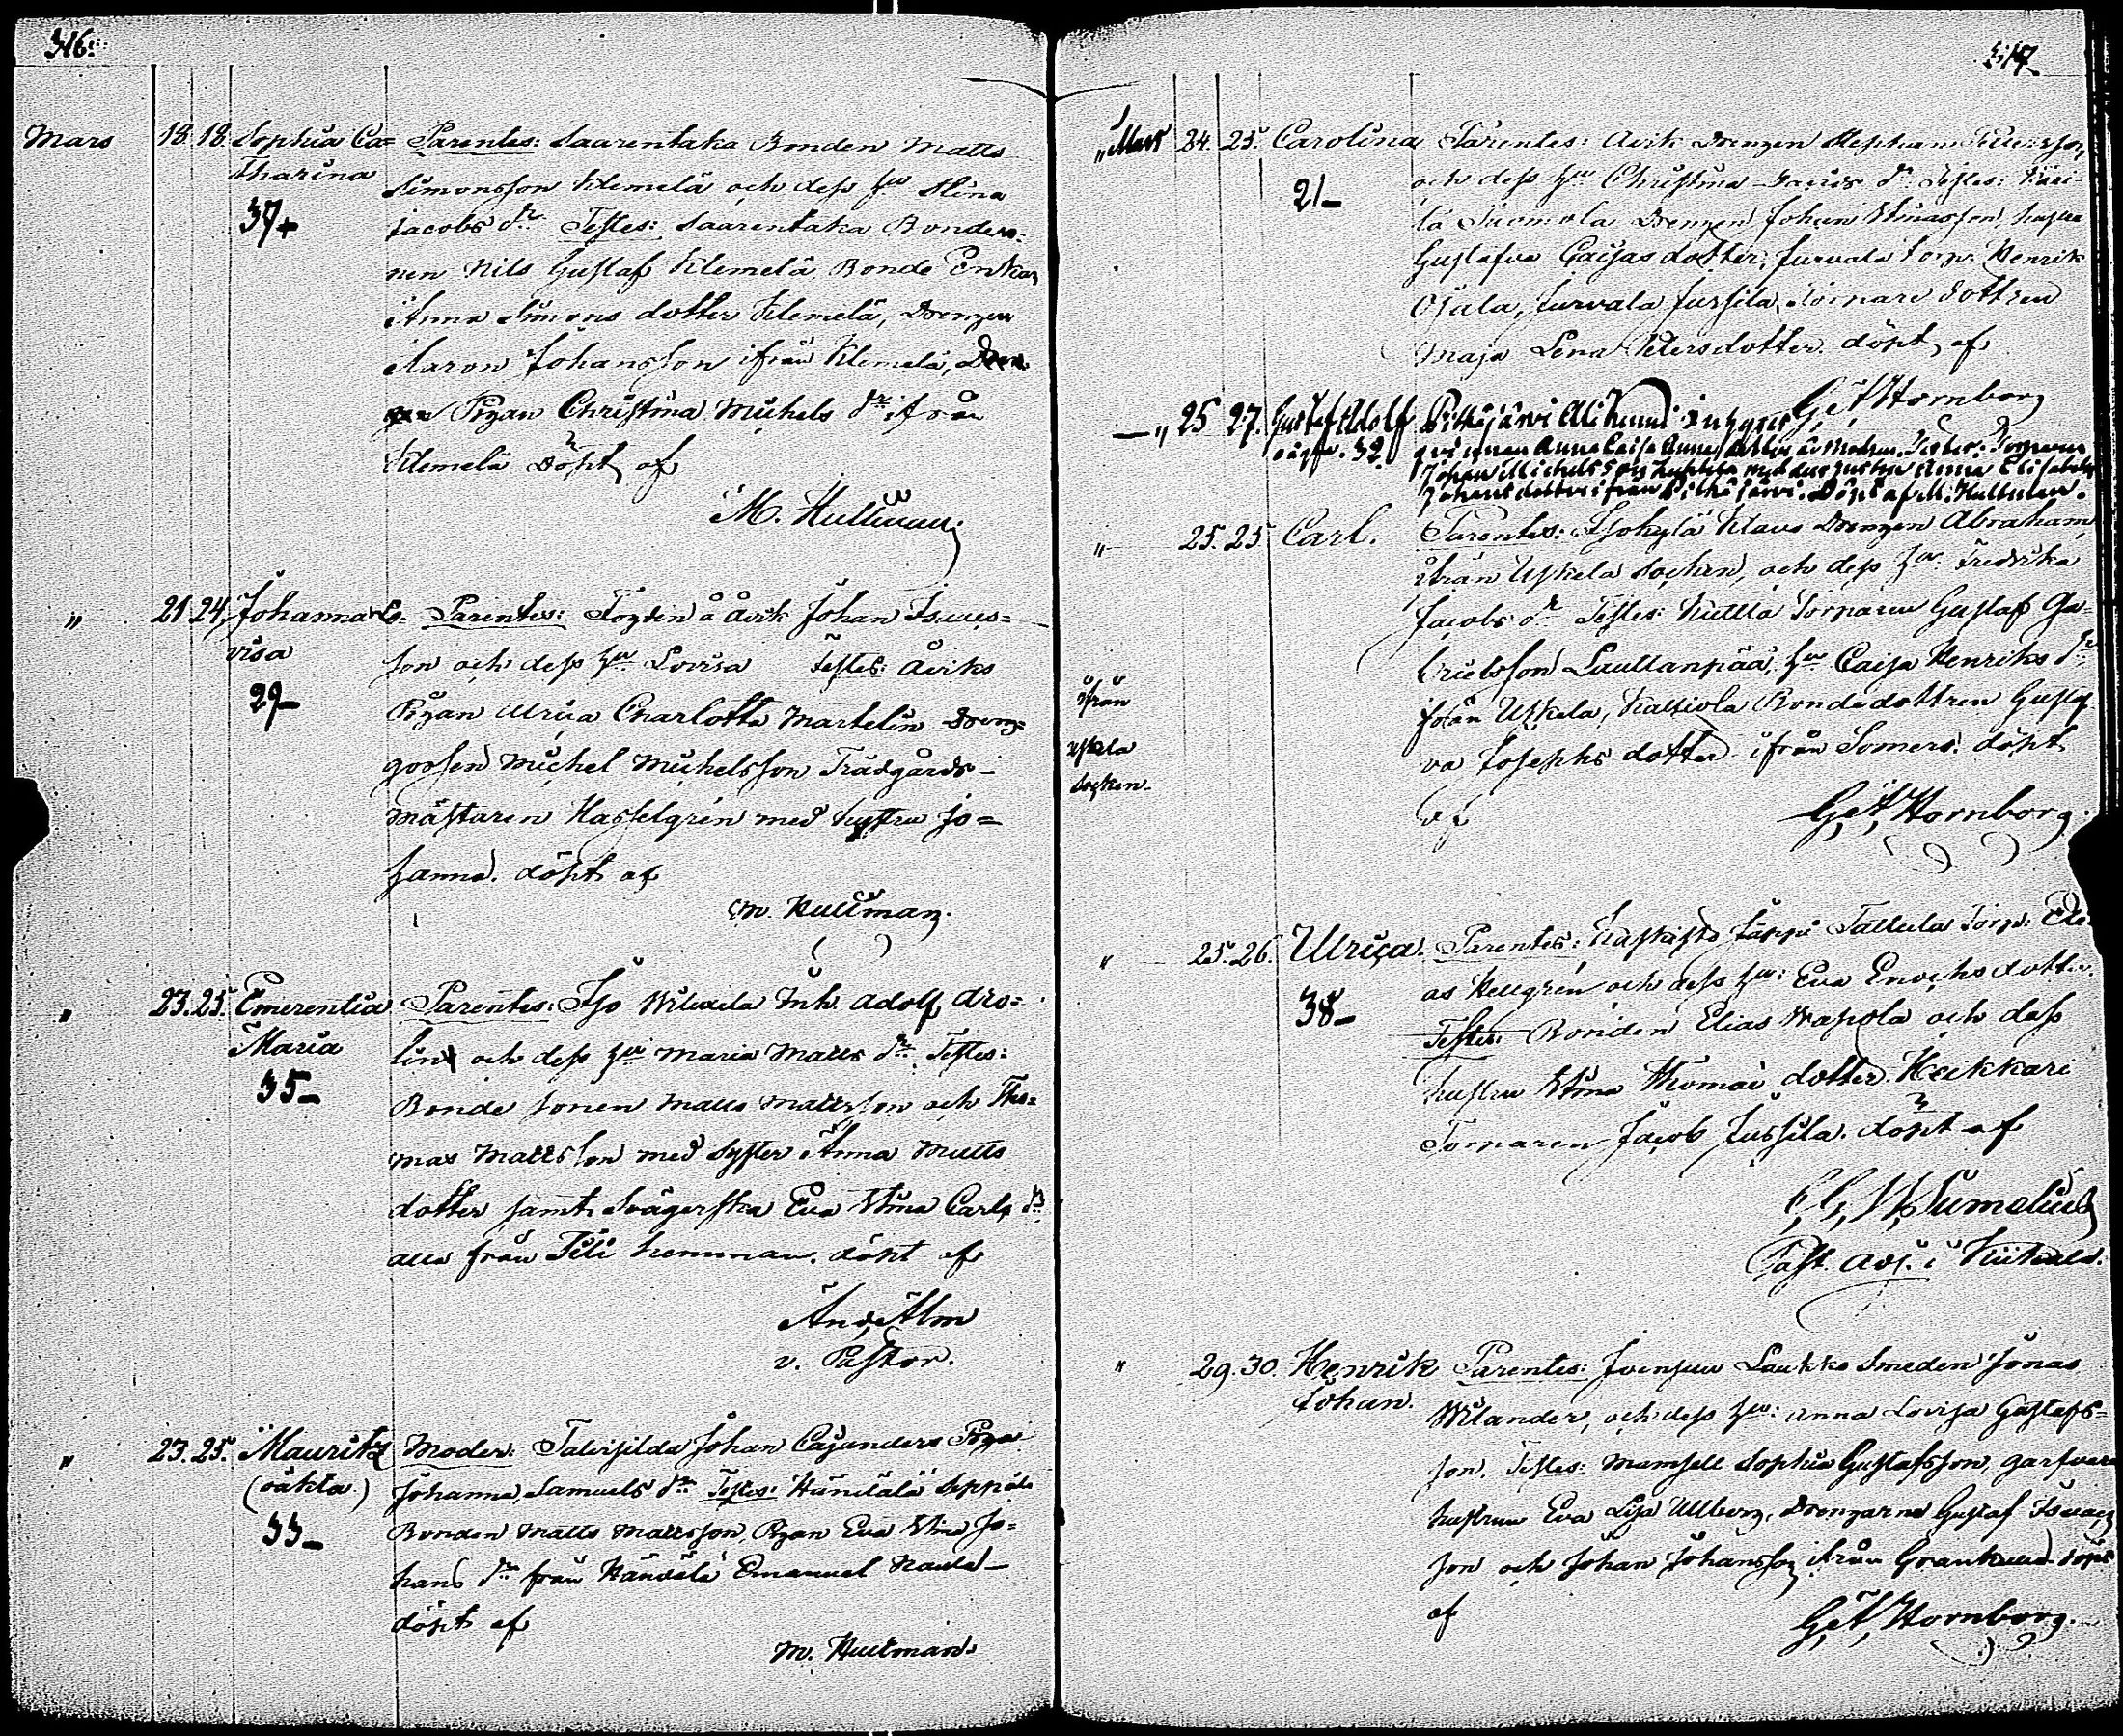 316.
Mars 18. 18. Sophia Ca= Parentes: Saarentaka Bonden Matts
tharina Simonsson Klemelä och dess hu Stina
37+ Jacobs dr Testes: Saarentaka Bondens:
nen Nils Gustaf Klemelä, Bonde Enkan
Anna Simons dotter Klemelä, Drengen
Aaron Johansson ifrån Klemelä,
Pigan Christina Michels dr ifrån
Klemelä döpt af
M. Hultman.
" 21 24, Johanna Lo= Parentes: Fogden å Åvik Johan Isacs=
visa son och dess hu Lovisa Testes: Åviks
29- Pigan Ulrica Charlotta Martelin Dreng=
gossen Michel Michelsson Trädgårds-
mästaren Hasselgrén med hustru Jo=
hanna. döpt af
M. Hultman.
" 23. 25. Emerentia Parentes: Iso Inh. Adolf Aro=
Maria lin och dess hu Maria Matts dr Testes:
35- Bonde sonen Matts Mattsson och Tho=
mas Mattsson med syster Anna Matts
dotter samt Svägerska Eva Stina Carls dr
alla från Tili hemman. döpt af
And. Alm
v. Pastor.
" 23. 25. Mauritz Moder: Johan Cajanders Piga
(oäkta) Johanna Samuels dr Testes: Seppälä
33- Bonden Matts Mattsson, Pigan Eva Stina Jo=
hans dr från Emanuel
döpt af
M. Hultman.
317
" Mars 24. 25. Carolina Parentes: Åvik Drengen Stephan
21- och dess hu Christina dr. Testes:
la Suomola Drengen Johan hustru
Gustafva Caisas dotter, Jurvala torp. Henrik
Ojala, Jurvala Jussila Tornare dottren
Maja Lena Petersdotter. döpt af
G. A. Hornborg
— " 25 27. Gustaf Adolf Pitkäjärvi Alikunni Inhyses
oägta. 32. qvinnan Anna Caisa Annas dotter är Modren. Testes: Torparen
Johan Michelsson hustru Anna Elisabeth
Johans dotter ifrån Pitkäjärvi. Döpt af M. Hultman.
" 25. 25 Carl. Parentes: Isokylä Klavs Drengen Abraham
ifrån Uskela Socken, och dess hu: Fredrika
Jacobs dr Testes: Torparen Gustaf Ga=
brielsson hu Caisa Henriks dr
ifrån
Uskela
Socken.
ifrån Uskela, Bondedottren Gustaf=
va Josephs dotter ifrån Somero. döpt
af G. A. Hornborg.
" 25. 26. Ulrica. Parentes: Torp: Eli=
38- as Hellgrén och dess hu: Eva Enochs dotter.
Testes: Bonden Elias Wapola och dess
hustru Stina Thomæ dotter. Heikkari
Tornaren Jacob Jussila. döpt af
Sumelius
Past. Adj. i Kiikala.
" 29. 30. Henrik Parentes: Joensuu Laukka Smeden Jonas
Johan. Wilander, och dess hu: Anna Lovisa Gustafs=
son. Testes: Mamsell Sophia Gustafsson, garfvare
hustrun Eva Lisa Ullberg, Drengarne Gustaf Isaac
son och Johan Johansson ifrån döpt
af G. A. Hornborg.